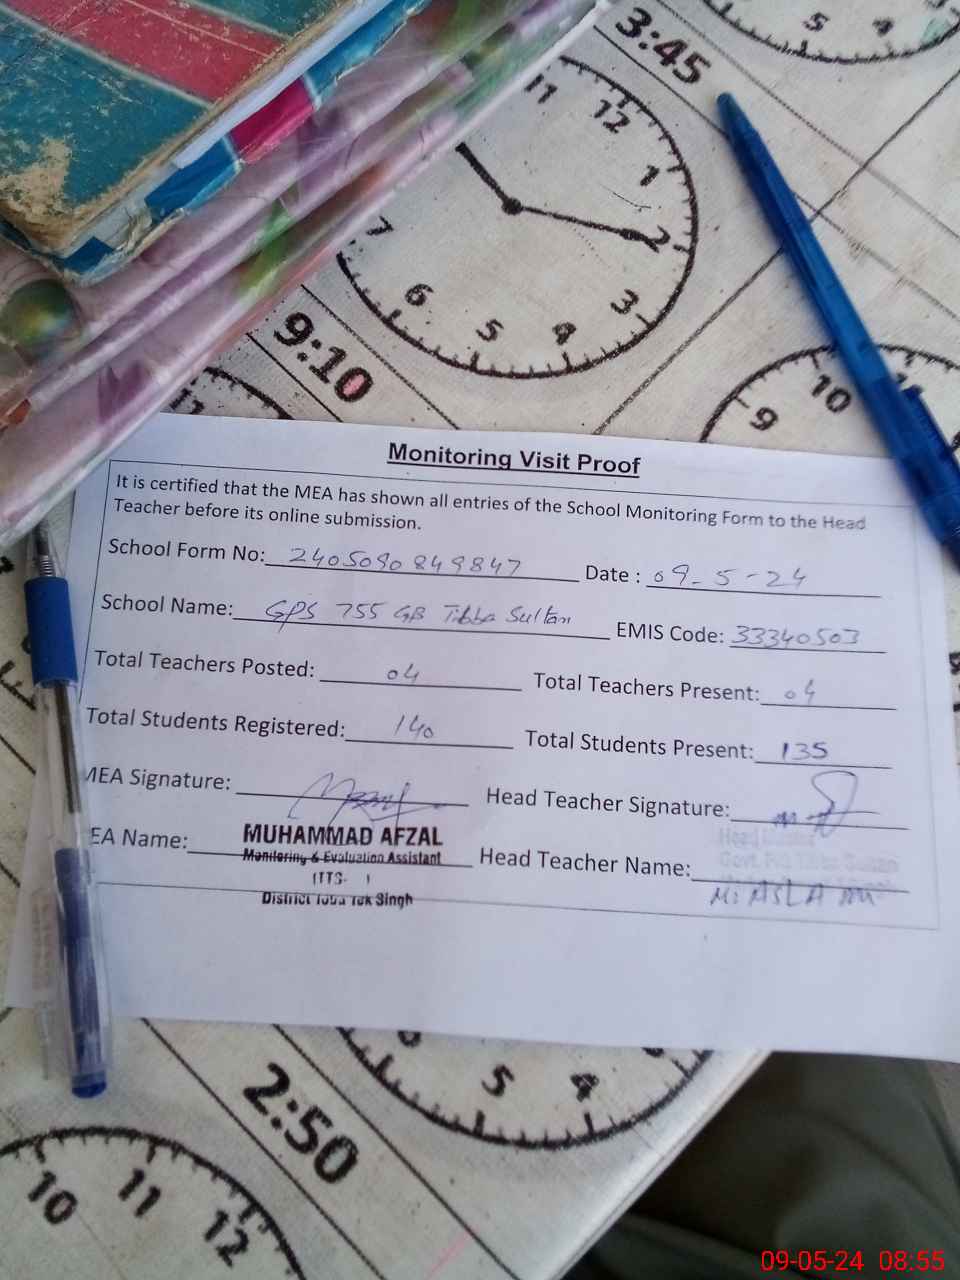 3:45
5 4
11 12 1 2 3 4 5 6 7
9:10
11
9 10
Monitoring Visit Proof
It is certified that the MEA has shown all entries of the School Monitoring Form to the Head
Teacher before its online submission.
School Form No: 2405090849847 Date : 09-5-24
School Name: GPS 755 GB Tibba Sultan EMIS Code: 33340503
Total Teachers Posted: 04 Total Teachers Present: 04
Total Students Registered: 140 Total Students Present: 135
MEA Signature: Head Teacher Signature:
EA Name: MUHAMMAD AFZAL Head Teacher Name:
Monitoring & Evaluation Assistant
District Toba Tek Singh
M. ASLAM
5 4
2:50
10 11 12
09-05-24 08:55